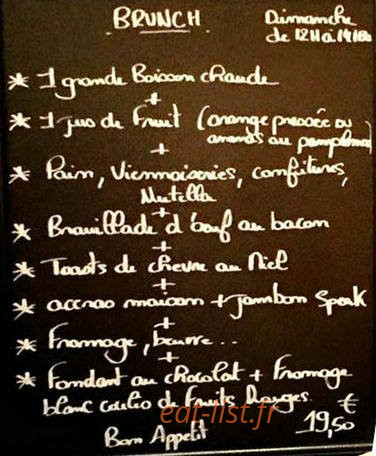 BRUNCH
Dimanche
de 12H à 14H30
* 1 grande Boisson chaude
+
* 1 jus de Fruit (orange pressée ou
ananas ou pamplemo
+
* Pain, Viennoiseries, confitures,
Nutella
+
* Brouillade d'oeuf au bacon
+
* Toasts de chevre au Miel
+
* accras maison + jambon Speak
+
* Fromage, beurre...
+
* Fondant au chocolat + Fromage
blanc coulis de fruits Rouges.
eat-list.fr
€
19,50
Bon Appetit